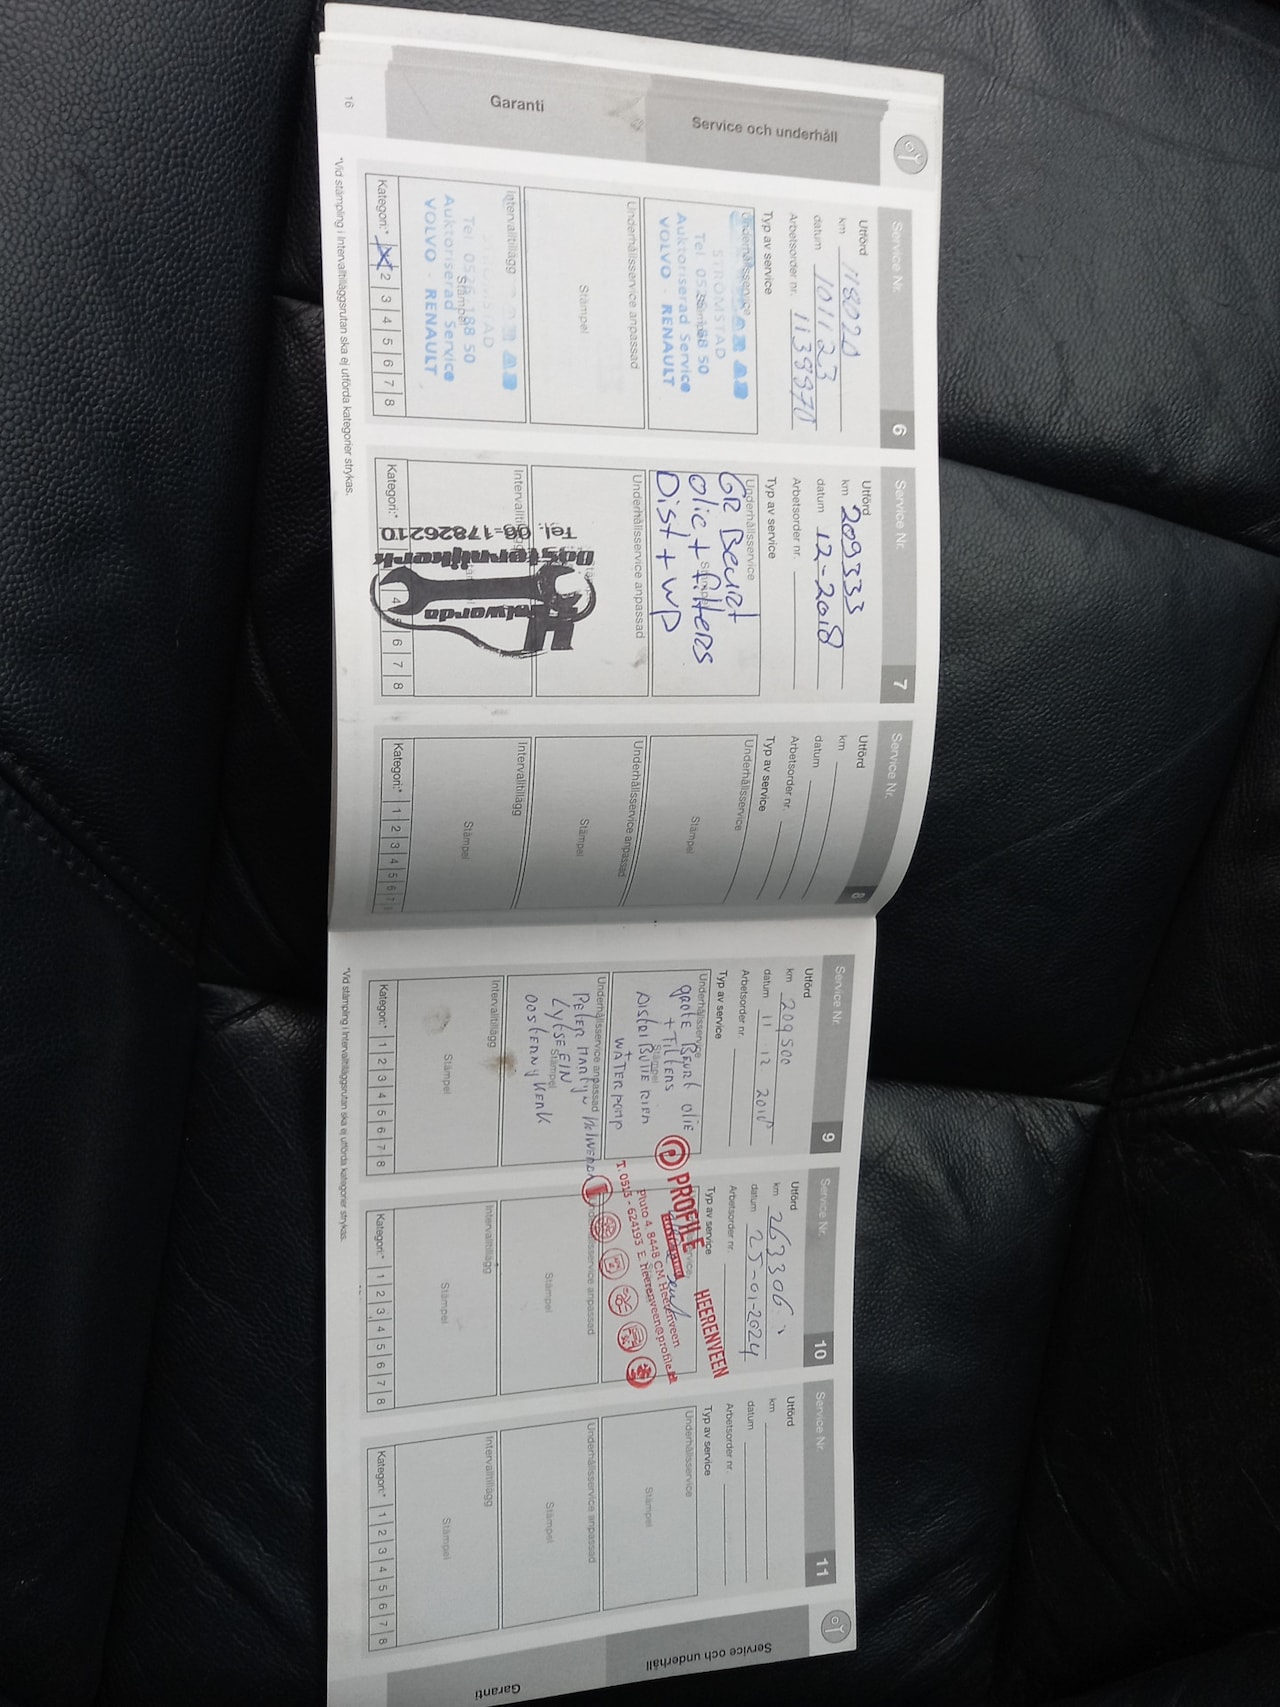 Garanti
Service och underhåll
16
Service Nr.
6
Utförd
km 118020
datum 101123
Arbetsorder nr. 1139970
Typ av service
Underhållsservice
STRÖMSTAD
Tel 0526-188 50
Auktoriserad Service
VOLVO · RENAULT
Underhållsservice anpassad
Stämpel
Intervalltillägg
Tel. 0526-188 50
Auktoriserad Service
VOLVO · RENAULT
Kategori:* 2 3 4 5 6 7 8
Service Nr.
7
Utförd
km 209333
datum 12-2018
Arbetsorder nr.
Typ av service
Underhållsservice
GR Beurt
olie + filters
Dist + WP
Underhållsservice anpassad
Tel.: 06-17826210
Oosternijkerk
Kategori:* 4 6 7 8
Service Nr.
8
Utförd
km
datum
Arbetsorder nr.
Typ av service
Underhållsservice
Stämpel
Underhållsservice anpassad
Stämpel
Intervalltillägg
Stämpel
Kategori:* 1 2 3 4 5 6 7
*Vid stämpling i Intervalltilläggsrutan ska ej utförda kategorier strykas.
Service Nr.
9
Utförd
km 209500
datum 11 12 2018
Arbetsorder nr.
Typ av service
Underhållsservice
GROTE BEURT OLIE
+ FILTERS
DISTRIBUTIE RIEM
+
WATERPOMP
Underhållsservice anpassad
PETER MARTIJN
OOSTERNYKERK
Intervalltillägg
Stämpel
Kategori:* 1 2 3 4 5 6 7 8
Service Nr.
10
Utförd
km 263306
datum 25-01-2024
Arbetsorder nr.
Typ av service
PROFILE
HEERENVEEN
Pluto 4, 8448 CM Heerenveen
T. 0513 - 624193 E. heerenveen@profile.nl
Stämpel
Intervalltillägg
Stämpel
Kategori:* 1 2 3 4 5 6 7 8
Service Nr.
11
Utförd
km
datum
Arbetsorder nr.
Typ av service
Underhållsservice
Stämpel
Underhållsservice anpassad
Stämpel
Intervalltillägg
Stämpel
Kategori:* 1 2 3 4 5 6 7 8
*Vid stämpling i Intervalltilläggsrutan ska ej utförda kategorier strykas.
Service och underhåll
Garanti